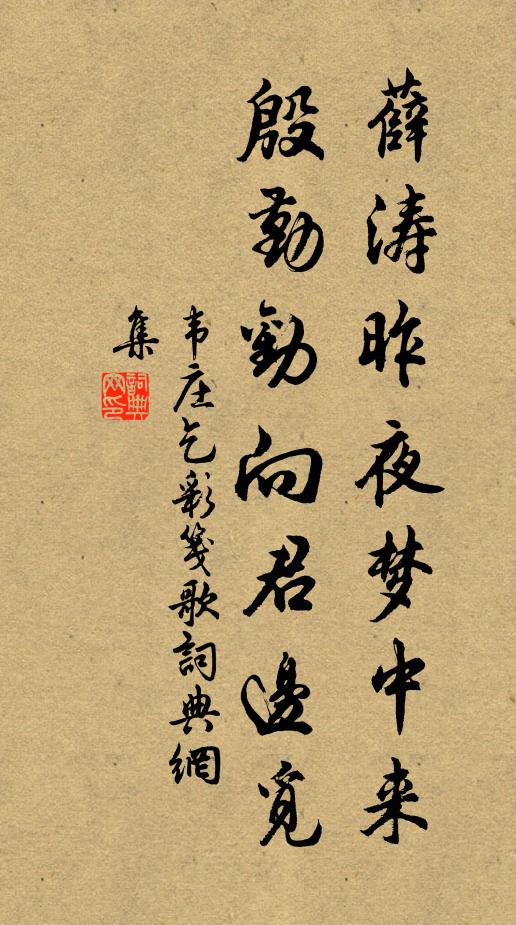 薛涛昨夜梦中来
殷勤勸向君邊覓
韦庄乞彩笺歌詞典網
集
詞典網印